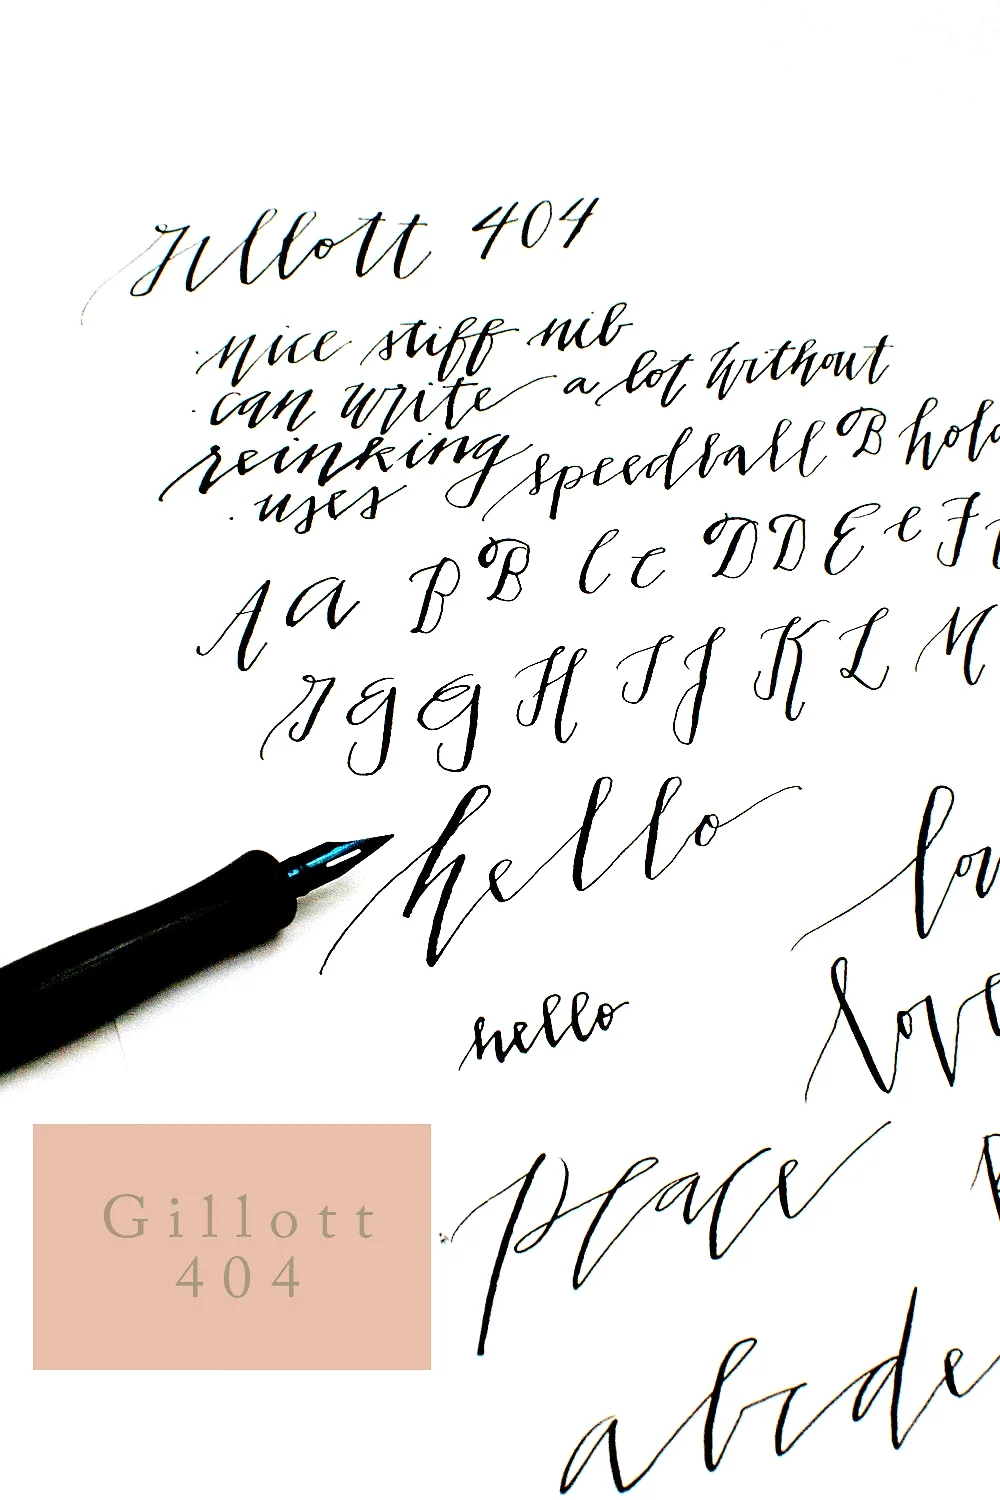 Gillott 404
· nice stiff nib
· can write a lot without
reinking
· uses speedball B hold
A a B B C c D D E e F
G G G H I J K L M
hello
hello
love
peace
abcde
Gillott
404